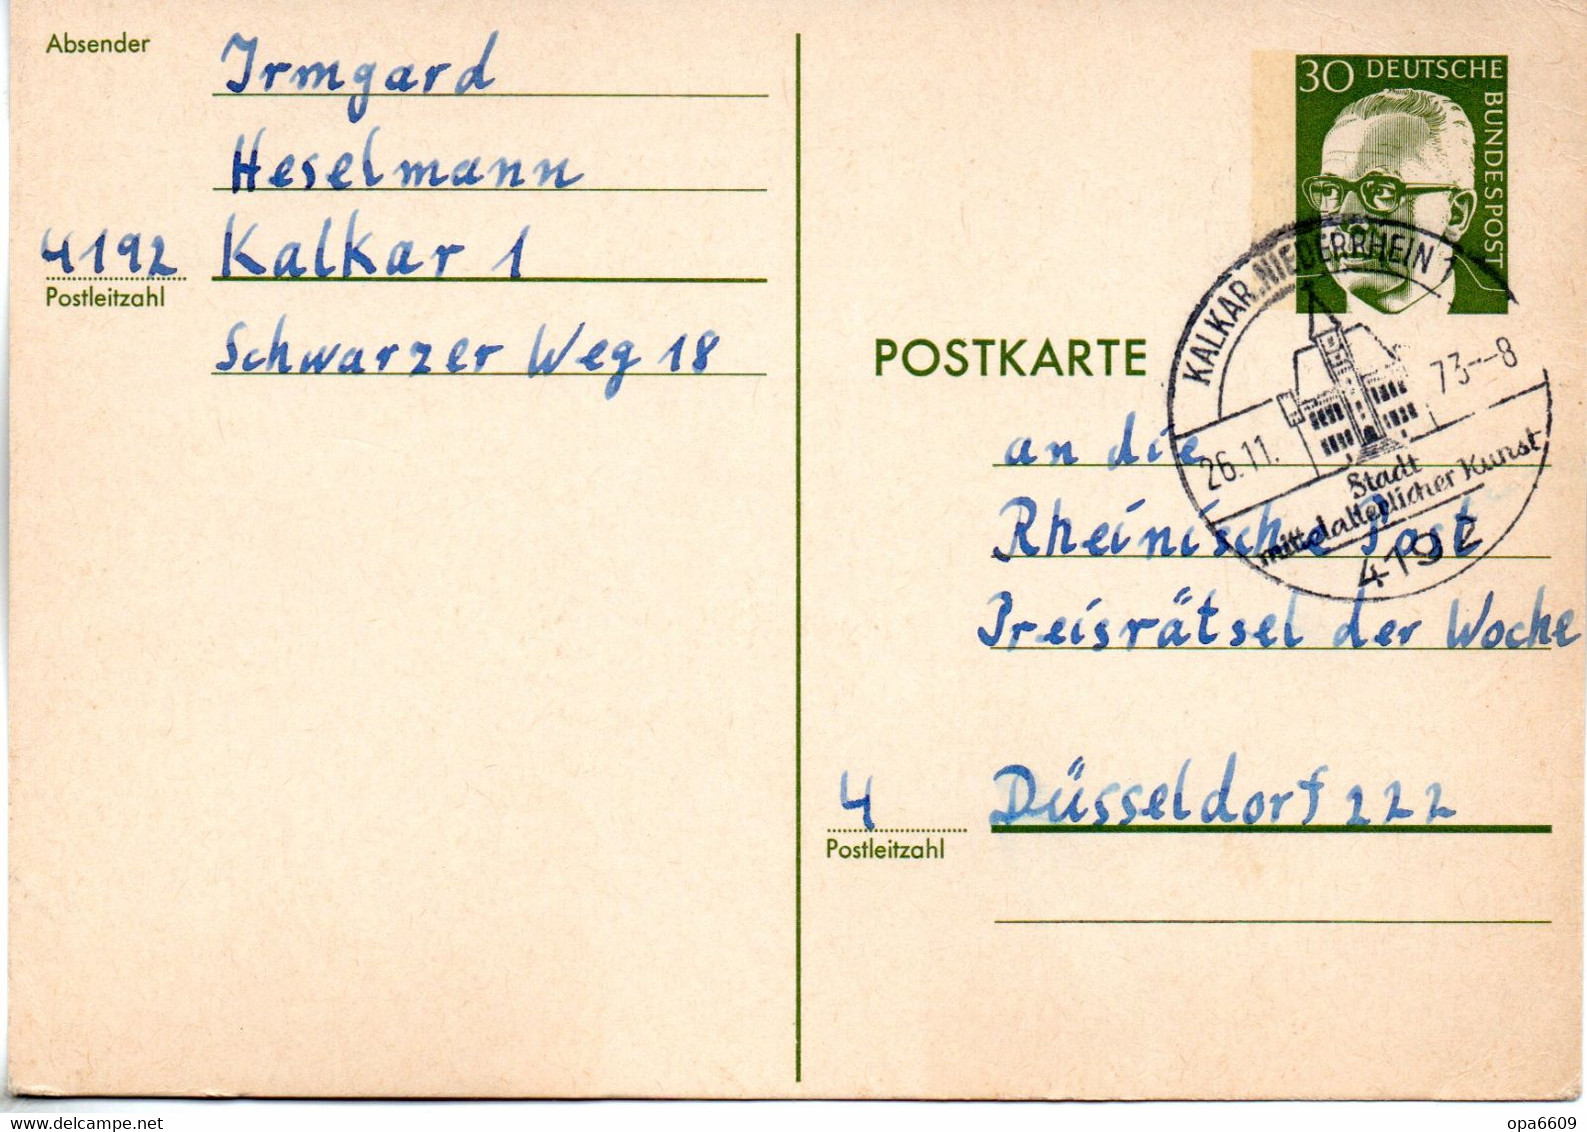 Absender
Irmgard
Heselmann
4192 Kalkar 1
Postleitzahl
Schwarzer Weg 18
30 DEUTSCHE
BUNDESPOST
POSTKARTE
KALKAR, NIEDERRHEIN 1
26.11. 73--8
Stadt
mittelalterlicher Kunst
4192
an die
Rheinische Post
Preisrätsel der Woche
4 Düsseldorf 222
Postleitzahl
www.delcampe.net
opa6609